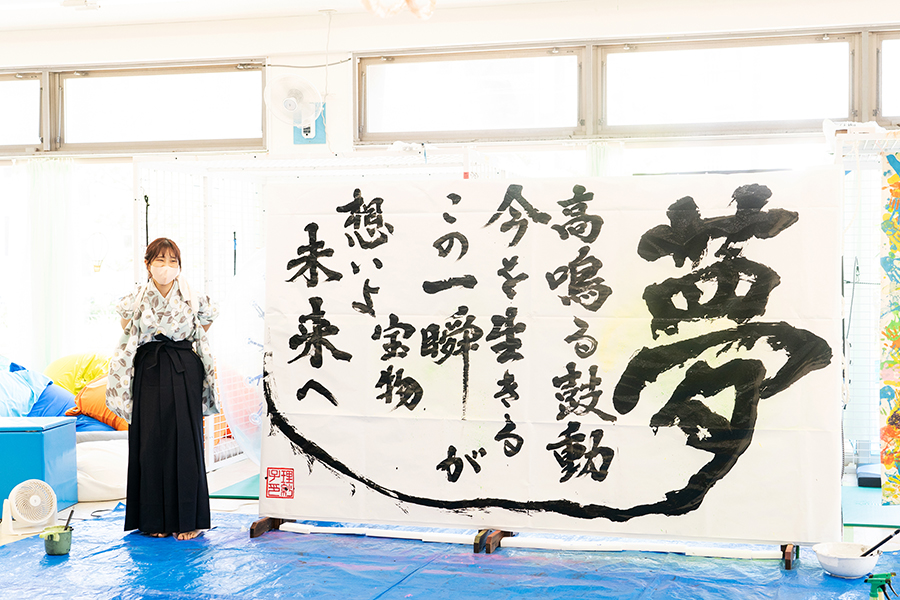 夢
高鳴る鼓動
今を生きる
この一瞬が
宝物
想いよ
未来へ